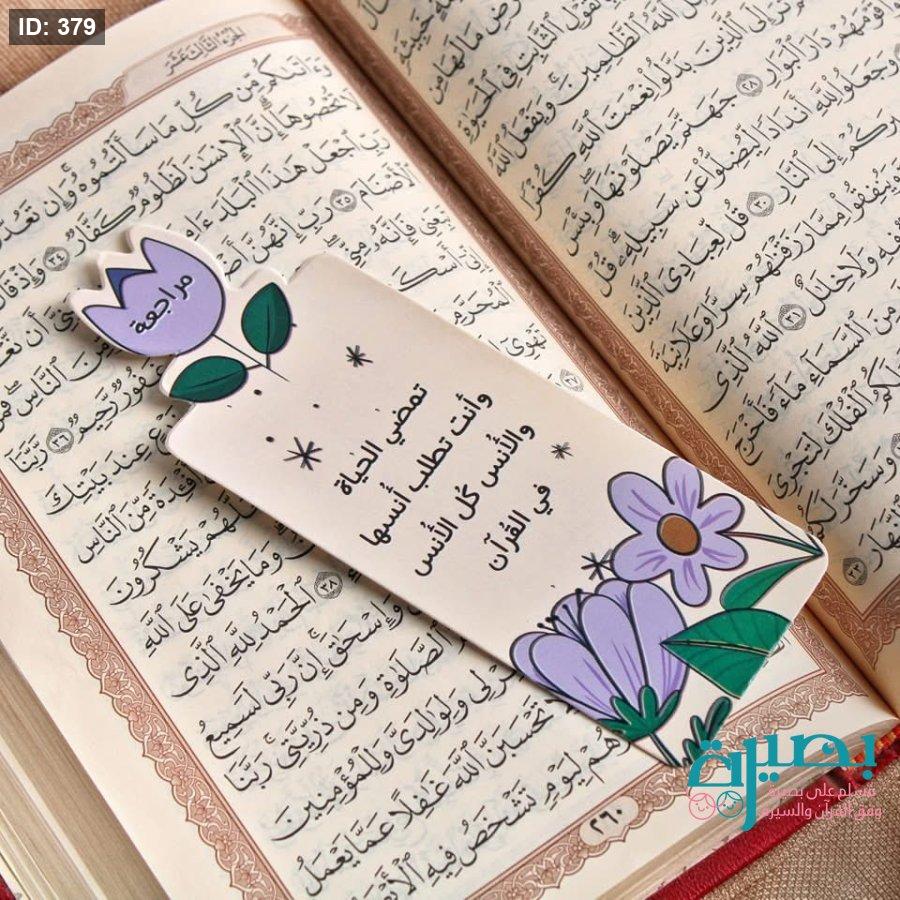 ID: 379
الجزء الثالث عشر
وَءَاتَىٰكُم مِّن كُلِّ مَا سَأَلْتُمُوهُ ۚ وَإِن تَعُدُّ
لَا تُحْصُوهَا ۗ إِنَّ ٱلْإِنسَٰنَ لَظَلُومٌ كَفَّارٌ ٣٤ وَإِذْ قَالَ
رَبِّ ٱجْعَلْ هَٰذَا ٱلْبَلَدَ ءَا
ٱلْأَصْنَامَ ٣٥ رَبِّ إِنَّهُنَّ أَضْ
مراجعة
تمضي الحياة
وأنت تطلب أُنسها
والأُنس كُل الأُنس
في القُرآن
غَفُورٌ رَّحِيمٌ ٣٦ رَّبَّنَا
عِندَ بَيْتِكَ
أَفْـِٔدَةً مِّنَ ٱلنَّاسِ
لَعَلَّهُمْ يَشْكُرُونَ
وَمَا يَخْفَىٰ عَلَى ٱللَّهِ
٣٨ ٱلْحَمْدُ لِلَّهِ ٱلَّذِى
وَإِسْحَٰقَ ۚ إِنَّ رَبِّى لَسَمِيعُ
ٱلصَّلَوٰةِ وَمِن ذُرِّيَّتِى ۚ رَبَّنَا
لِى وَلِوَٰلِدَىَّ وَلِلْمُؤْمِنِينَ
تَحْسَبَنَّ ٱللَّهَ غَٰفِلًا عَمَّا يَعْمَلُ
هُمْ لِيَوْمٍ تَشْخَصُ فِيهِ ٱلْأَبْصَ
٢٦٠
ٱللَّهُ ٱلظَّٰلِمِينَ ۚ وَيَفْعَلُ ٱللَّهُ
إِلَى ٱلَّذِينَ بَدَّلُوا۟ نِعْمَتَ ٱللَّهِ كُفْرًا
قَوْمَهُمْ دَارَ ٱلْبَوَارِ ٢٨ جَهَنَّمَ يَصْلَوْنَهَا ۖ وَبِئْسَ
وَجَعَلُوا۟ لِلَّهِ أَندَادًا لِّيُضِلُّوا۟ عَن سَبِيلِهِۦ ۗ قُلْ
إِلَى ٱلنَّارِ ٣٠ قُل لِّعِبَادِىَ ٱلَّذِينَ
وَيُنفِقُوا۟ مِمَّا رَزَقْنَٰهُمْ سِرًّا وَعَلَانِيَةً
فِيهِ وَلَا خِلَٰلٌ ٣١ ٱللَّهُ ٱلَّذِى
مِنَ ٱلسَّمَآءِ مَآءً فَأَخْرَجَ
لَكُمُ ٱلْفُلْكَ لِتَجْرِىَ
وَسَخَّرَ لَكُمُ
ٱلنَّهَارَ ٣٣
بصيرة
مُسلم على بصيرة
وفق القرآن والسيرة